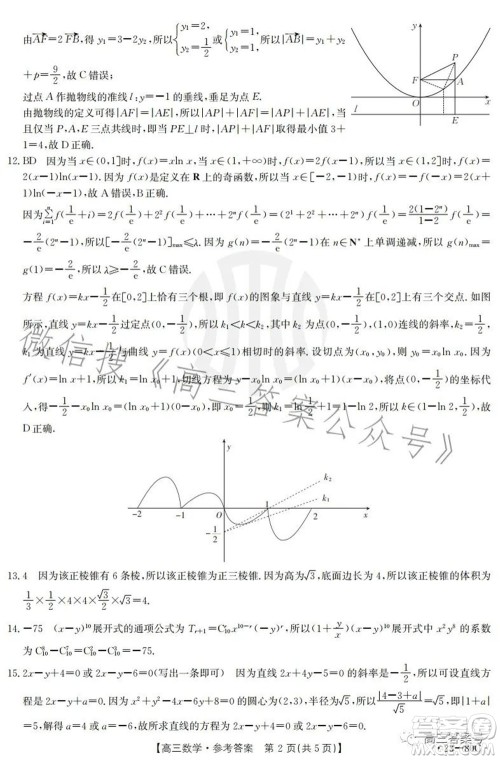 由$\overrightarrow{AF}=2\overrightarrow{FB}$,得 $y_1=3-2y_2$,所以$\begin{cases}y_1=2,\\y_2=\frac{1}{2}\end{cases}$或$\begin{cases}y_1=1,\\y_2=1,\end{cases}$所以$|\overrightarrow{AB}|=y_1+y_2$
$+p=\frac{9}{2}$,故 C 错误;
过点 A 作抛物线的准线 $l:y=-1$ 的垂线,垂足为点 E.
由抛物线的定义可得$|AF|=|AE|$,所以$|AP|+|AF|=|AP|+|AE|$,当
且仅当 P,A,E 三点共线时,即当 $PE\perp l$ 时,$|AP|+|AF|$取得最小值 3+
1=4,故 D 正确.
y
P
F
A
O
x
l
E
12. BD 因为当 $x\in(0,1]$时,$f(x)=x\ln x$,当 $x\in(1,+\infty)$时,$f(x)=2f(x-1)$,所以当 $x\in(1,2]$时,$f(x)=$
$2(x-1)\ln(x-1)$.因为 $f(x)$是定义在 R 上的奇函数,所以当 $x\in[-2,-1)$时,$f(x)=-f(-x)=2(x+$
$1)\ln(-x-1)$,故 A 错误,B 正确.
因为$\sum_{i=1}^{n}f(\frac{1}{e}+i)=2f(\frac{1}{e})+2^2f(\frac{1}{e})+\cdots+2^nf(\frac{1}{e})=(2^1+2^2+\cdots+2^n)f(\frac{1}{e})=\frac{2(1-2^n)}{1-2}f(\frac{1}{e})=$
$-\frac{2}{e}(2^n-1)$,所以$[-\frac{2}{e}(2^n-1)]_{\max}\leqslant\lambda$.因为 $g(n)=-\frac{2}{e}(2^n-1)$在 $n\in N^*$上单调递减,所以$[-\frac{2}{e}(2^n-1)]_{\max}=$
$g(1)=-\frac{2}{e}$,所以$\lambda\geqslant-\frac{2}{e}$,故 C 错误.
方程 $f(x)=kx-\frac{1}{2}$在$[0,2]$上恰有三个根,即 $f(x)$的图象与直线 $y=kx-\frac{1}{2}$在$[0,2]$上有三个交点.如图
所示,直线 $y=kx-\frac{1}{2}$过定点$(0,-\frac{1}{2})$,所以 $k_1<k<k_2$,其中 $k_2$为点$(0,-\frac{1}{2})$,$(1,0)$连线的斜率,$k_2=\frac{1}{2}$,
$k_1$为直线 $y=kx-\frac{1}{2}$与曲线 $f(x)(0<x\leqslant1)$相切时的斜率.设切点为$(x_0,y_0)$,则 $y_0=x_0\ln x_0$.因为
$f'(x)=\ln x+1$,所以 $k_1=\ln x_0+1$,切线方程为 $y-x_0\ln x_0=(\ln x_0+1)(x-x_0)$,将点$(0,-\frac{1}{2})$的坐标代
入,得$-\frac{1}{2}-x_0\ln x_0=(\ln x_0+1)(0-x_0)$,即 $x_0=\frac{1}{2}$,则 $k_1=\ln\frac{1}{2}+1=1-\ln 2$,所以 $k\in(1-\ln 2,\frac{1}{2})$,故
D 正确.
y
k₂
k₁
-2
-1
O
1
2
x
$-\frac{1}{2}$
13. 4 因为该正棱锥有 6 条棱,所以该正棱锥为正三棱锥.因为高为$\sqrt{3}$,底面边长为 4,所以该正棱锥的体积为
$\frac{1}{3}\times\frac{1}{2}\times4\times4\times\frac{\sqrt{3}}{2}\times\sqrt{3}=4$.
14. -75 $(x-y)^{10}$展开式的通项公式为 $T_{r+1}=C_{10}^{r}x^{10-r}(-y)^r$,所以$(1+\frac{y}{x})(x-y)^{10}$展开式中 $x^2y^8$的系数
为 $C_{10}^{8}-C_{10}^{7}=C_{10}^{2}-C_{10}^{3}=-75$.
15. $2x-y+4=0$ 或 $2x-y-6=0$(写出一条即可) 因为直线 $2x+4y-5=0$ 的斜率是$-\frac{1}{2}$,所以可设直线方
程是 $2x-y+a=0$.因为 $x^2+y^2-4x-6y+8=0$ 的圆心为(2,3),半径为$\sqrt{5}$,所以$\frac{|4-3+a|}{\sqrt{5}}=\sqrt{5}$,即$|1+a|$
$=5$,解得 $a=4$ 或 $a=-6$,故直线方程是 $2x-y+4=0$ 或 $2x-y-6=0$.
【高三数学·参考答案 第 2 页(共 5 页)】
微信搜《高三答案公众号》
高三答案号